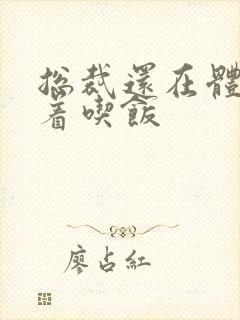 總裁還在體
着喫飯
廖占紅